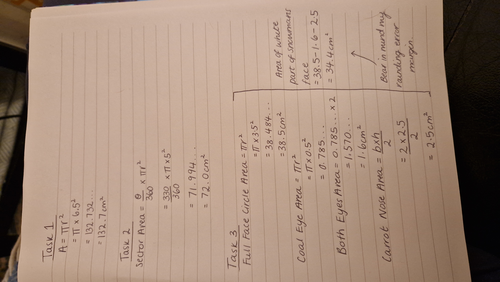 Task 1
A = πr²
= π x 6.5²
= 132.732...
= 132.7cm²
Task 2
Sector Area = θ/360 x πr²
= 330/360 x π x 5²
= 71.994...
= 72.0cm²
Task 3
Full Face Circle Area = πr²
= π x 3.5²
= 38.484...
= 38.5cm²
Coal Eye Area = πr²
= π x 0.5²
= 0.785...
Both Eyes Area = 0.785... x 2
= 1.570...
= 1.6cm²
Carrot Nose Area = bxh/2
= 2 x 2.5/2
= 2.5cm²
Area of white
part of snowmans
face
= 38.5-1.6-2.5
= 34.4cm²
Bear in mind my
rounding error
margen.